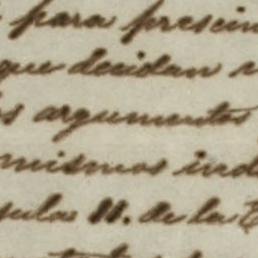 para prescin
que decidan
s argumentos
mismos ind
sula 11. de la